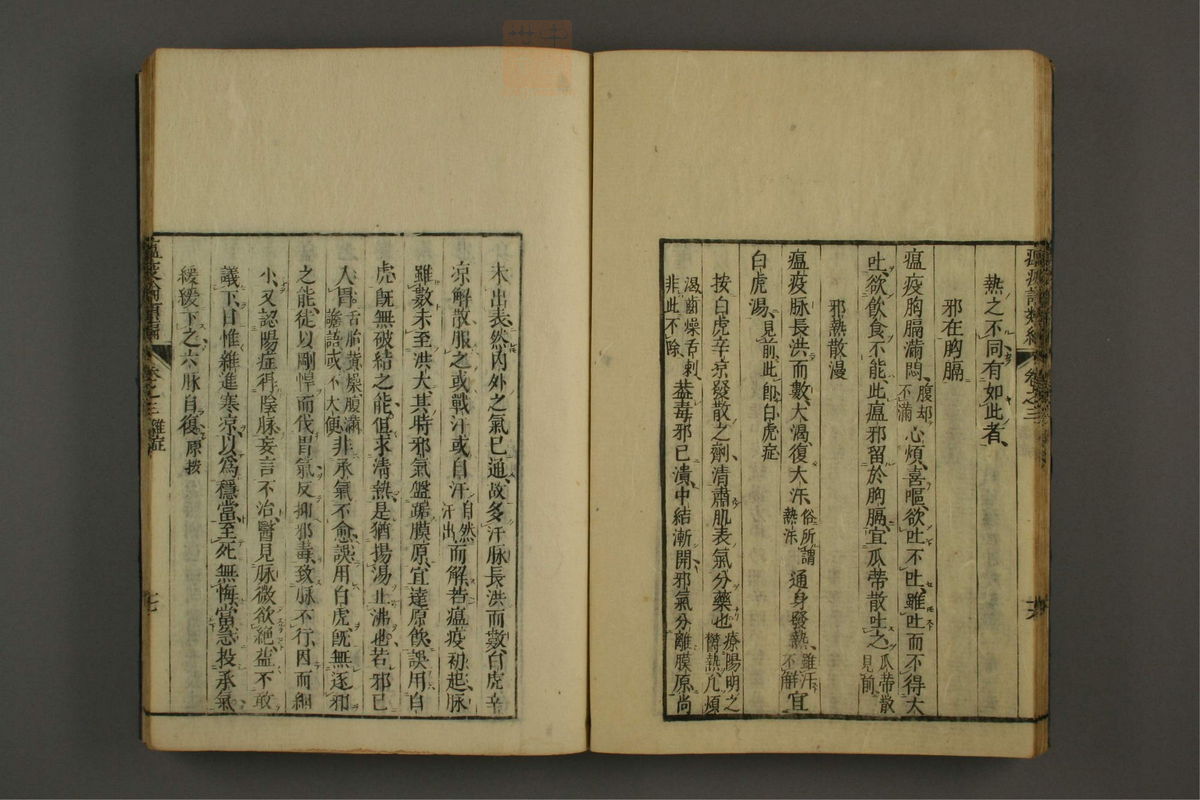 熱之不同有如此者、
邪在胸膈
瘟疫胸膈滿悶、腹却不滿心煩、喜嘔、欲吐不吐、雖吐而不得大
吐、欲飲食不能、此瘟邪留於胸膈、宜瓜蒂散吐之瓜蒂散見前、
邪熱散漫
瘟疫脉長洪而數、大渴復大汗俗所謂熱汗通身發熱、雖汗不解宜
白虎湯、見前、此即白虎症
按白虎辛凉發散之劑、清肅肌表氣分藥也療陽明之欝熱、凡煩
渴齒燥舌刺、非此不除、葢毒邪已潰、中結漸開、邪氣分離膜原、尚
瘟疫論類編
卷之三
未出表、然内外之氣已通、故多汗脉長洪而數、白虎辛
凉解散服之或戰汗或自汗自然汗出而解、若瘟疫初起、脉
雖數未至洪大、其時邪氣盤踞膜原、宜達原飲、誤用白
虎既無破結之能、但求清熱、是猶揚湯止沸也、若邪已
入胃舌胎黄燥腹滿譫語或不大便非承氣不愈、誤用白虎、既無逐邪
之能、徒以剛悍而伐胃氣、反抑邪毒、致脉不行、因而細
小、又認陽症得陰脉、妄言不治、醫見脉微欲絶、益不敢
議下、日惟維進寒凉、以爲穩當、至死無悔、當急投承氣
緩緩下之、六脉自復、原按
瘟疫論類編
卷之三
雜症
十七